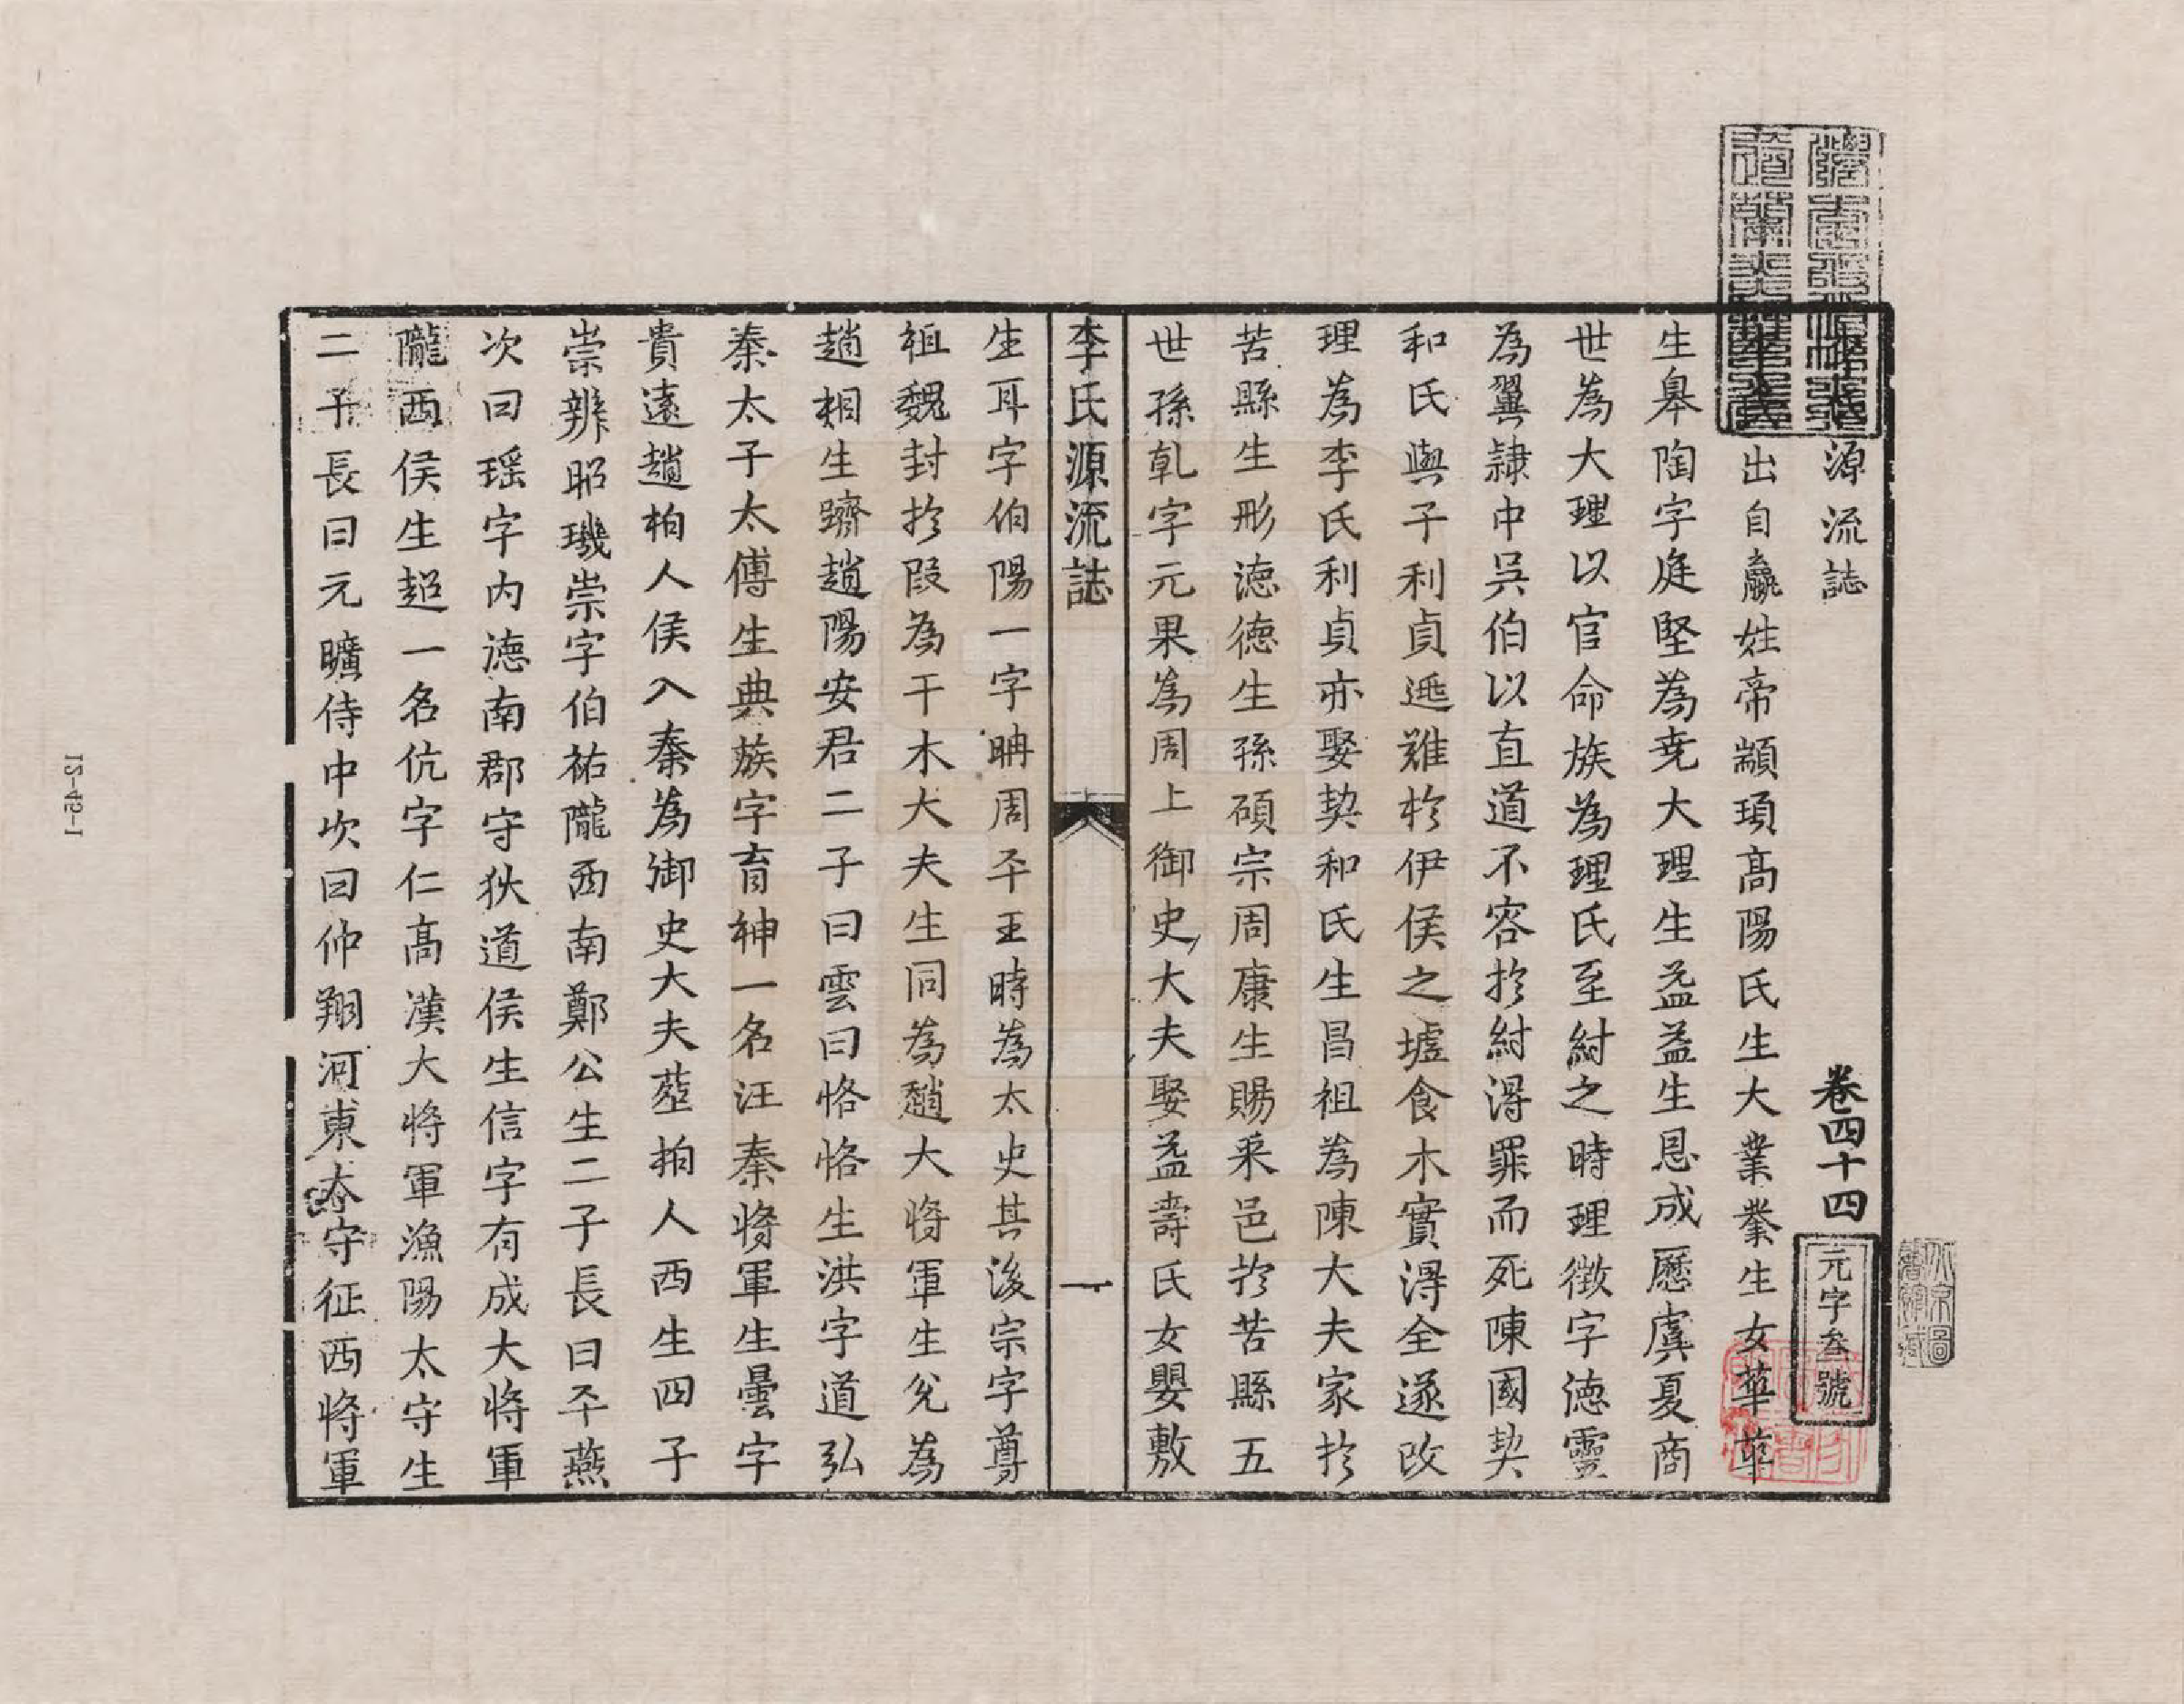 源流誌 卷四十四 元字叁號
出自嬴姓帝顓頊高陽氏生大業業生女華華
生皋陶字庭堅為尭大理生益益生恩成歷虞夏商
世為大理以官命族為理氏至紂之時理徴字德靈
為翼隷中吳伯以直道不容扵紂得罪而死陳國契
和氏與子利貞逃難扵伊侯之墟食木實得全遂改
理為李氏利貞亦娶契和氏生昌祖為陳大夫家扵
苦縣生彤德德生孫碩宗周康生賜采邑扵苦縣五
世孫乹字元果為周上御史大夫娶益壽氏女嬰敷
李氏源流誌 一
生耳字伯陽一字聃周平王時為太史其後宗字尊
祖魏封扵叚為干木大夫生同為趙大將軍生兊為
趙相生躋趙陽安君二子曰雲曰恪恪生洪字道弘
秦太子太傅生典族字育神一名汪秦將軍生曇字
貴遠趙柏人侯入秦為御史大夫塟柏人西生四子
崇辨昭璣崇字伯祐隴西南鄭公生二子長曰平燕
次曰瑶字内德南郡守狄道侯生信字有成大將軍
隴西侯生超一名伉字仁高漢大將軍漁陽太守生
二子長曰元曠侍中次曰仲翔河東太守征西將軍
15-42-1